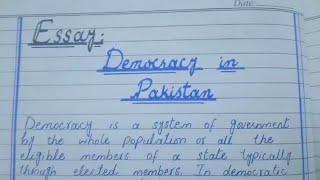 Date:
Essay:
Democracy in
Pakistan
Democracy is a system of government
by the whole population or all the
eligible members of a state typically
through elected members. In democratic